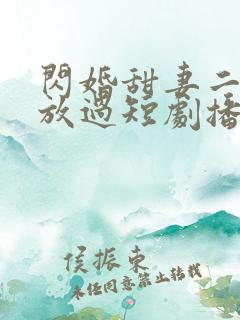 閃婚甜妻二
放過短劇播
侯振東
未任同意禁止转载